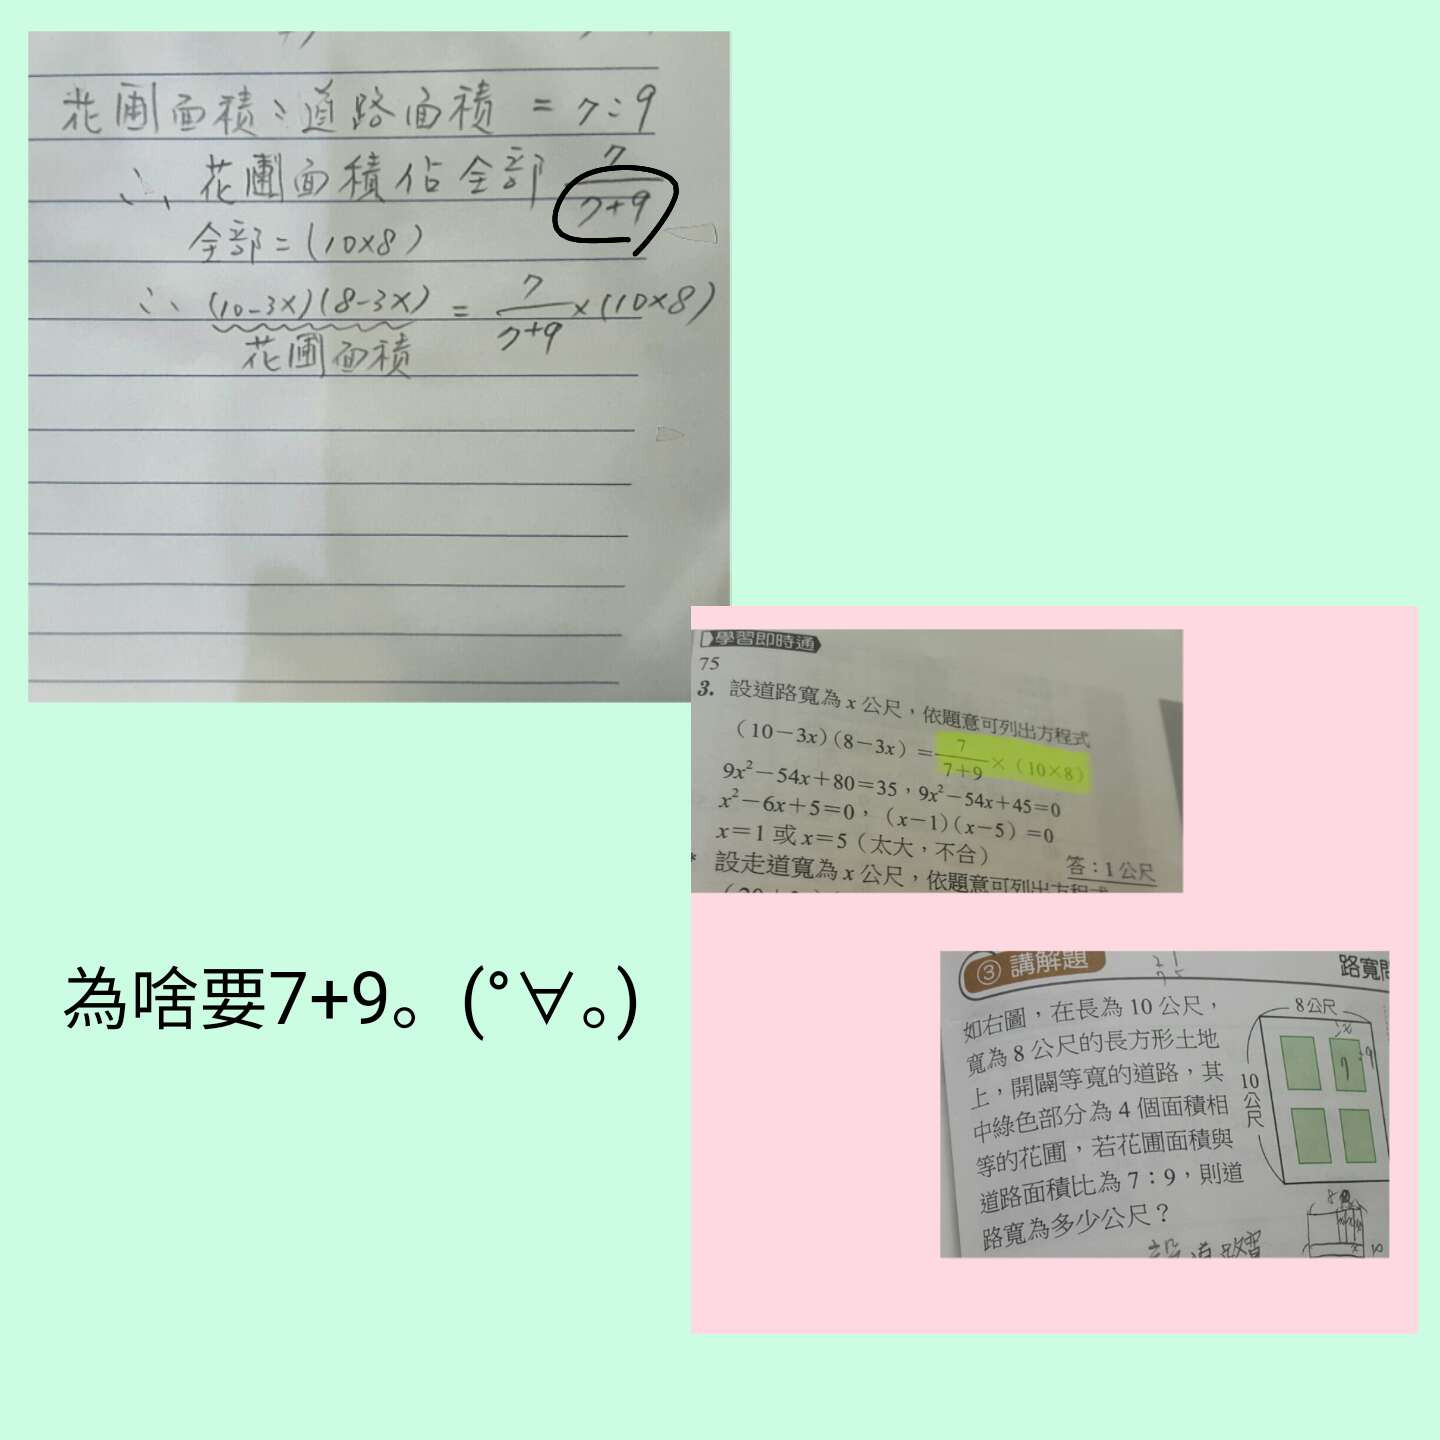 花圃面積：道路面積 = 7：9
∴ 花圃面積佔全部 7/7+9
全部 = (10×8)
∴ (10-3x)(8-3x) = 7/7+9 ×(10×8)
花圃面積
學習即時通
75
3. 設道路寬為 x 公尺，依題意可列出方程式
（10－3x）（8－3x）＝7/7＋9×（10×8）
9x²－54x＋80＝35，9x²－54x＋45＝0
x²－6x＋5＝0，（x－1）（x－5）＝0
x＝1 或 x＝5（太大，不合）
答：1 公尺
設走道寬為 x 公尺，依題意可列出方程式
為啥要7+9。(°∀。)
③ 講解題
路寬問
如右圖，在長為 10 公尺，
寬為 8 公尺的長方形土地
上，開闢等寬的道路，其
中綠色部分為 4 個面積相
等的花圃，若花圃面積與
道路面積比為 7：9，則道
路寬為多少公尺？
8公尺
x
7
9
10公尺
8
10